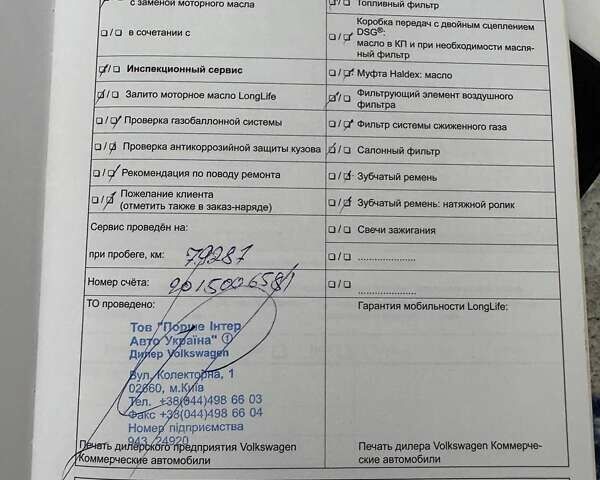 с заменой моторного масла
в сочетании с
Инспекционный сервис
Залито моторное масло LongLife
Проверка газобаллонной системы
Проверка антикоррозийной защиты кузова
Рекомендация по поводу ремонта
Пожелание клиента
(отметить также в заказ-наряде)
Сервис проведён на:
при пробеге, км: 79287
Номер счёта:
ТО проведено:
Тов "Порше Інтер
Авто Україна" ①
Дилер Volkswagen
Вул. Колекторна, 1
02660, м.Київ
Тел. +38(044)498 66 03
Факс +38(044)498 66 04
Номер підприємства
943 24920
Печать дилерского предприятия Volkswagen
Коммерческие автомобили
Топливный фильтр
Коробка передач с двойным сцеплением
DSG®:
масло в КП и при необходимости масля-
ный фильтр
Муфта Haldex: масло
Фильтрующий элемент воздушного
фильтра
Фильтр системы сжиженного газа
Салонный фильтр
Зубчатый ремень
Зубчатый ремень: натяжной ролик
Свечи зажигания
Гарантия мобильности LongLife:
Печать дилера Volkswagen Коммерче-
ские автомобили